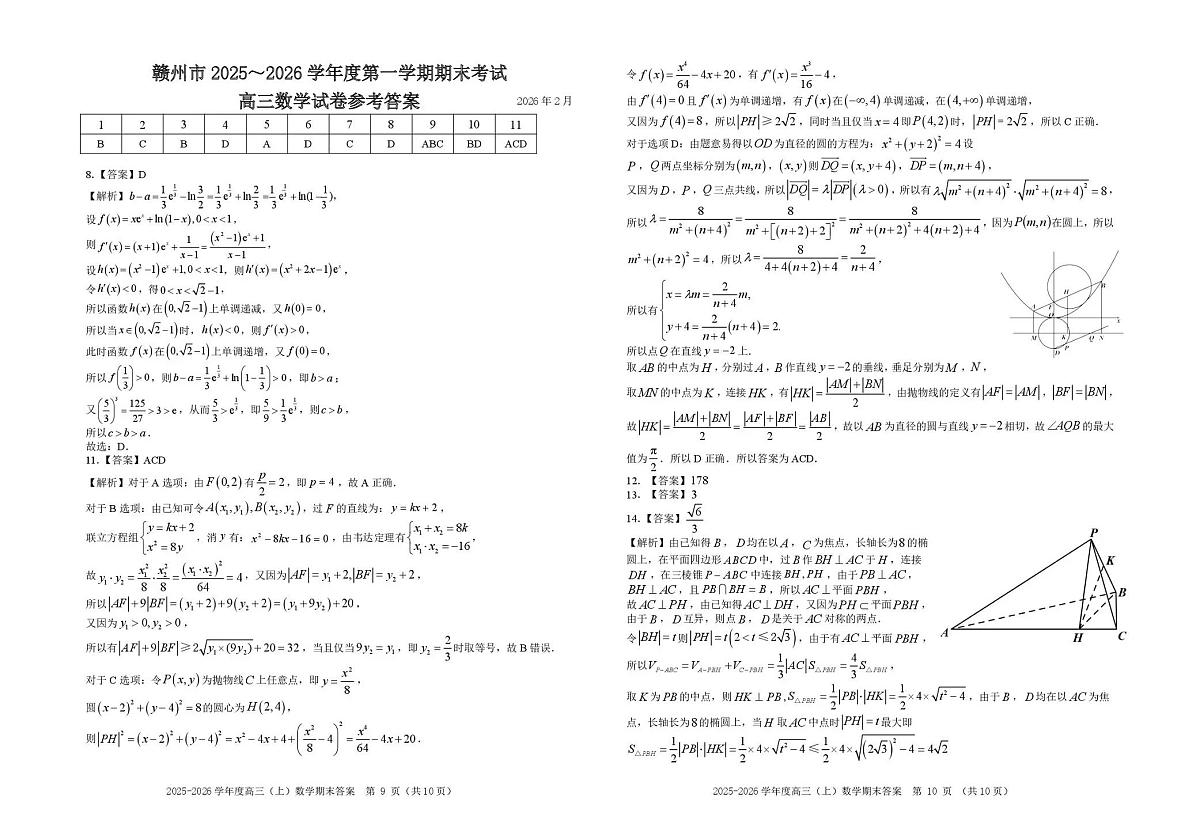 赣州市 2025～2026 学年度第一学期期末考试
高三数学试卷参考答案
2026 年 2 月
1 2 3 4 5 6 7 8 9 10 11
B C B D A D C D ABC BD ACD
8.【答案】D
【解析】b－a＝1/3 e^(1/3)－ln 3/2＝1/3 e^(1/3)＋ln 2/3＝1/3 e^(1/3)＋ln(1－1/3),
设 f(x)＝xe^x＋ln(1－x),0＜x＜1,
则 f′(x)＝(x＋1)e^x＋1/(x－1)＝((x²－1)e^x＋1)/(x－1),
设h(x)＝(x²－1)e^x＋1,0＜x＜1, 则h′(x)＝(x²＋2x－1)e^x,
令h′(x)＜0，得0＜x＜√2－1,
所以函数h(x)在(0,√2－1)上单调递减，又h(0)＝0,
所以当x∈(0,√2－1)时，h(x)＜0，则 f′(x)＞0,
此时函数 f(x)在(0,√2－1)上单调递增，又 f(0)＝0,
所以 f(1/3)＞0，则b－a＝1/3 e^(1/3)＋ln(1－1/3)＞0，即b＞a；
又(5/3)³＝125/27＞3＞e，从而5/3＞e^(1/3)，即5/9＞1/3 e^(1/3)，则c＞b，
所以c＞b＞a.
故选：D.
11.【答案】ACD
【解析】对于 A 选项：由 F(0,2) 有 p/2＝2，即 p＝4，故 A 正确.
对于 B 选项：由已知可令A(x₁,y₁),B(x₂,y₂)，过 F 的直线为：y＝kx＋2，
联立方程组{y＝kx＋2 x²＝8y，消 y 有：x²－8kx－16＝0，由韦达定理有{x₁＋x₂＝8k x₁·x₂＝－16，
故 y₁·y₂＝x₁²/8·x₂²/8＝(x₁·x₂)²/64＝4，又因为|AF|＝y₁＋2,|BF|＝y₂＋2，
所以|AF|＋9|BF|＝(y₁＋2)＋9(y₂＋2)＝(y₁＋9y₂)＋20.
又因为 y₁＞0,y₂＞0，
所以有|AF|＋9|BF|≥2√(y₁×(9y₂))＋20＝32，当且仅当9y₂＝y₁，即y₂＝2/3时取等号，故 B 错误.
对于 C 选项：令P(x,y)为抛物线C上任意点，即 y＝x²/8，
圆(x－2)²＋(y－4)²＝8的圆心为H(2,4)，
则|PH|²＝(x－2)²＋(y－4)²＝x²－4x＋4＋(x²/8－4)²＝x⁴/64－4x＋20.
2025-2026 学年度高三（上）数学期末答案 第 9 页（共10页）
令 f(x)＝x⁴/64－4x＋20，有 f′(x)＝x³/16－4，
由 f′(4)＝0且 f′(x)为单调递增，有 f(x)在(－∞,4)单调递减，在(4,＋∞)单调递增，
又因为 f(4)＝8，所以|PH|≥2√2，同时当且仅当 x＝4即P(4,2)时，|PH|＝2√2，所以 C 正确.
对于选项 D：由题意易得以OD为直径的圆的方程为：x²＋(y＋2)²＝4设
P，Q两点坐标分别为(m,n)，(x,y)则DQ＝(x,y＋4)，DP＝(m,n＋4)，
又因为D，P，Q三点共线，所以|DQ|＝λ|DP|(λ＞0)，所以有λ√(m²＋(n＋4)²)·√(m²＋(n＋4)²)＝8，
所以λ＝8/(m²＋(n＋4)²)＝8/(m²＋[(n＋2)＋2]²)＝8/(m²＋(n＋2)²＋4(n＋2)＋4)，因为P(m,n)在圆上，所以
m²＋(n＋2)²＝4，所以λ＝8/(4＋4(n＋2)＋4)＝2/(n＋4)，
所以有{x＝λm＝2/(n＋4) m, y＋4＝2/(n＋4) (n＋4)＝2.
所以点Q在直线 y＝－2上.
取AB的中点为H，分别过A，B作直线 y＝－2的垂线，垂足分别为M，N，
取MN的中点为K，连接HK，有|HK|＝(|AM|＋|BN|)/2，由抛物线的定义有|AF|＝|AM|，|BF|＝|BN|，
故|HK|＝(|AM|＋|BN|)/2＝(|AF|＋|BF|)/2＝|AB|/2，故以AB为直径的圆与直线 y＝－2相切，故∠AQB的最大
值为π/2.所以 D 正确．所以答案为 ACD.
12. 【答案】178
13. 【答案】3
14.【答案】√6/3
【解析】由已知得B，D均在以A，C为焦点，长轴为8的椭
圆上，在平面四边形ABCD中，过B作BH⊥AC于H，连接
DH，在三棱锥P－ABC中连接BH,PH，由于PB⊥AC，
BH⊥AC，且PB∩BH＝B，所以AC⊥平面PBH，
故AC⊥PH，由已知得AC⊥DH，又因为PH⊂平面PBH，
由于B，D互异，则点B，D是关于AC对称的两点.
令|BH|＝t则|PH|＝t(2＜t≤2√3)，由于有AC⊥平面PBH，
所以V_P－ABC＝V_A－PBH＋V_C－PBH＝1/3|AC|S△PBH＝4/3 S△PBH，
取K为PB的中点，则HK⊥PB,S△PBH＝1/2|PB|·|HK|＝1/2×4×√(t²－4)，由于B，D均在以AC为焦
点，长轴长为8的椭圆上，当H取AC中点时|PH|＝t最大即
S△PBH＝1/2|PB|·|HK|＝1/2×4×√(t²－4)≤1/2×4×√((2√3)²－4)＝4√2
P
K
B
A
H
C
2025-2026 学年度高三（上）数学期末答案 第 10 页 （共10页）